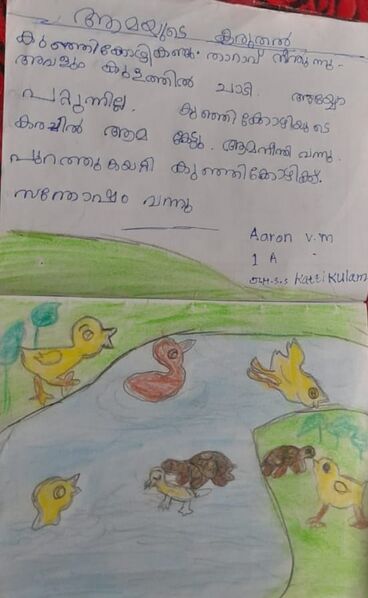 ആമയുടെ കരുതൽ
കുഞ്ഞിക്കോഴികണ്ടു. താറാവ് നീന്തുന്നു.
അവളും കുളത്തിൽ ചാടി. അയ്യോ
പറ്റുന്നില്ല. കുഞ്ഞിക്കോഴിയുടെ
കരച്ചിൽ ആമ കേട്ടു. ആമനീന്തി വന്നു.
പുറത്തുകയറി കുഞ്ഞിക്കോഴിക്ക്.
സന്തോഷം വന്നു
Aaron V.M
1 A
Kattikulam